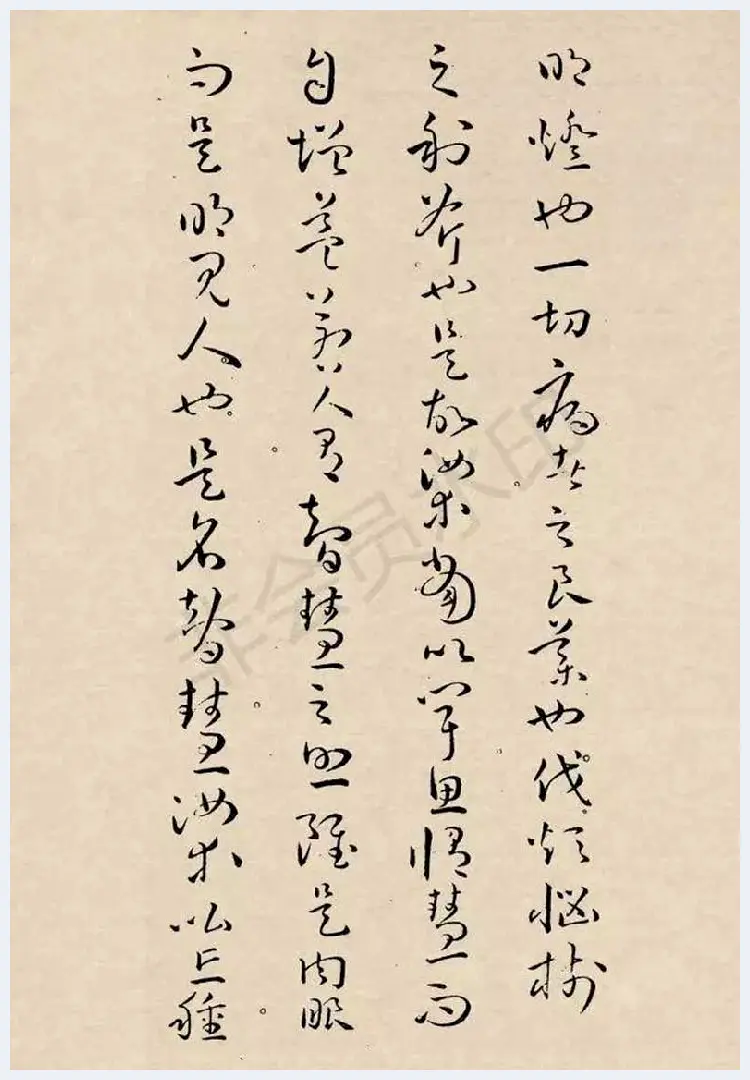 明燈也一切病者之良藥也伐煩惱樹
之利斧也是故汝等當以聞思修慧而
自增益若人有智慧之照雖是肉眼
而是明見人也是名智慧汝等以上種
非会员水印